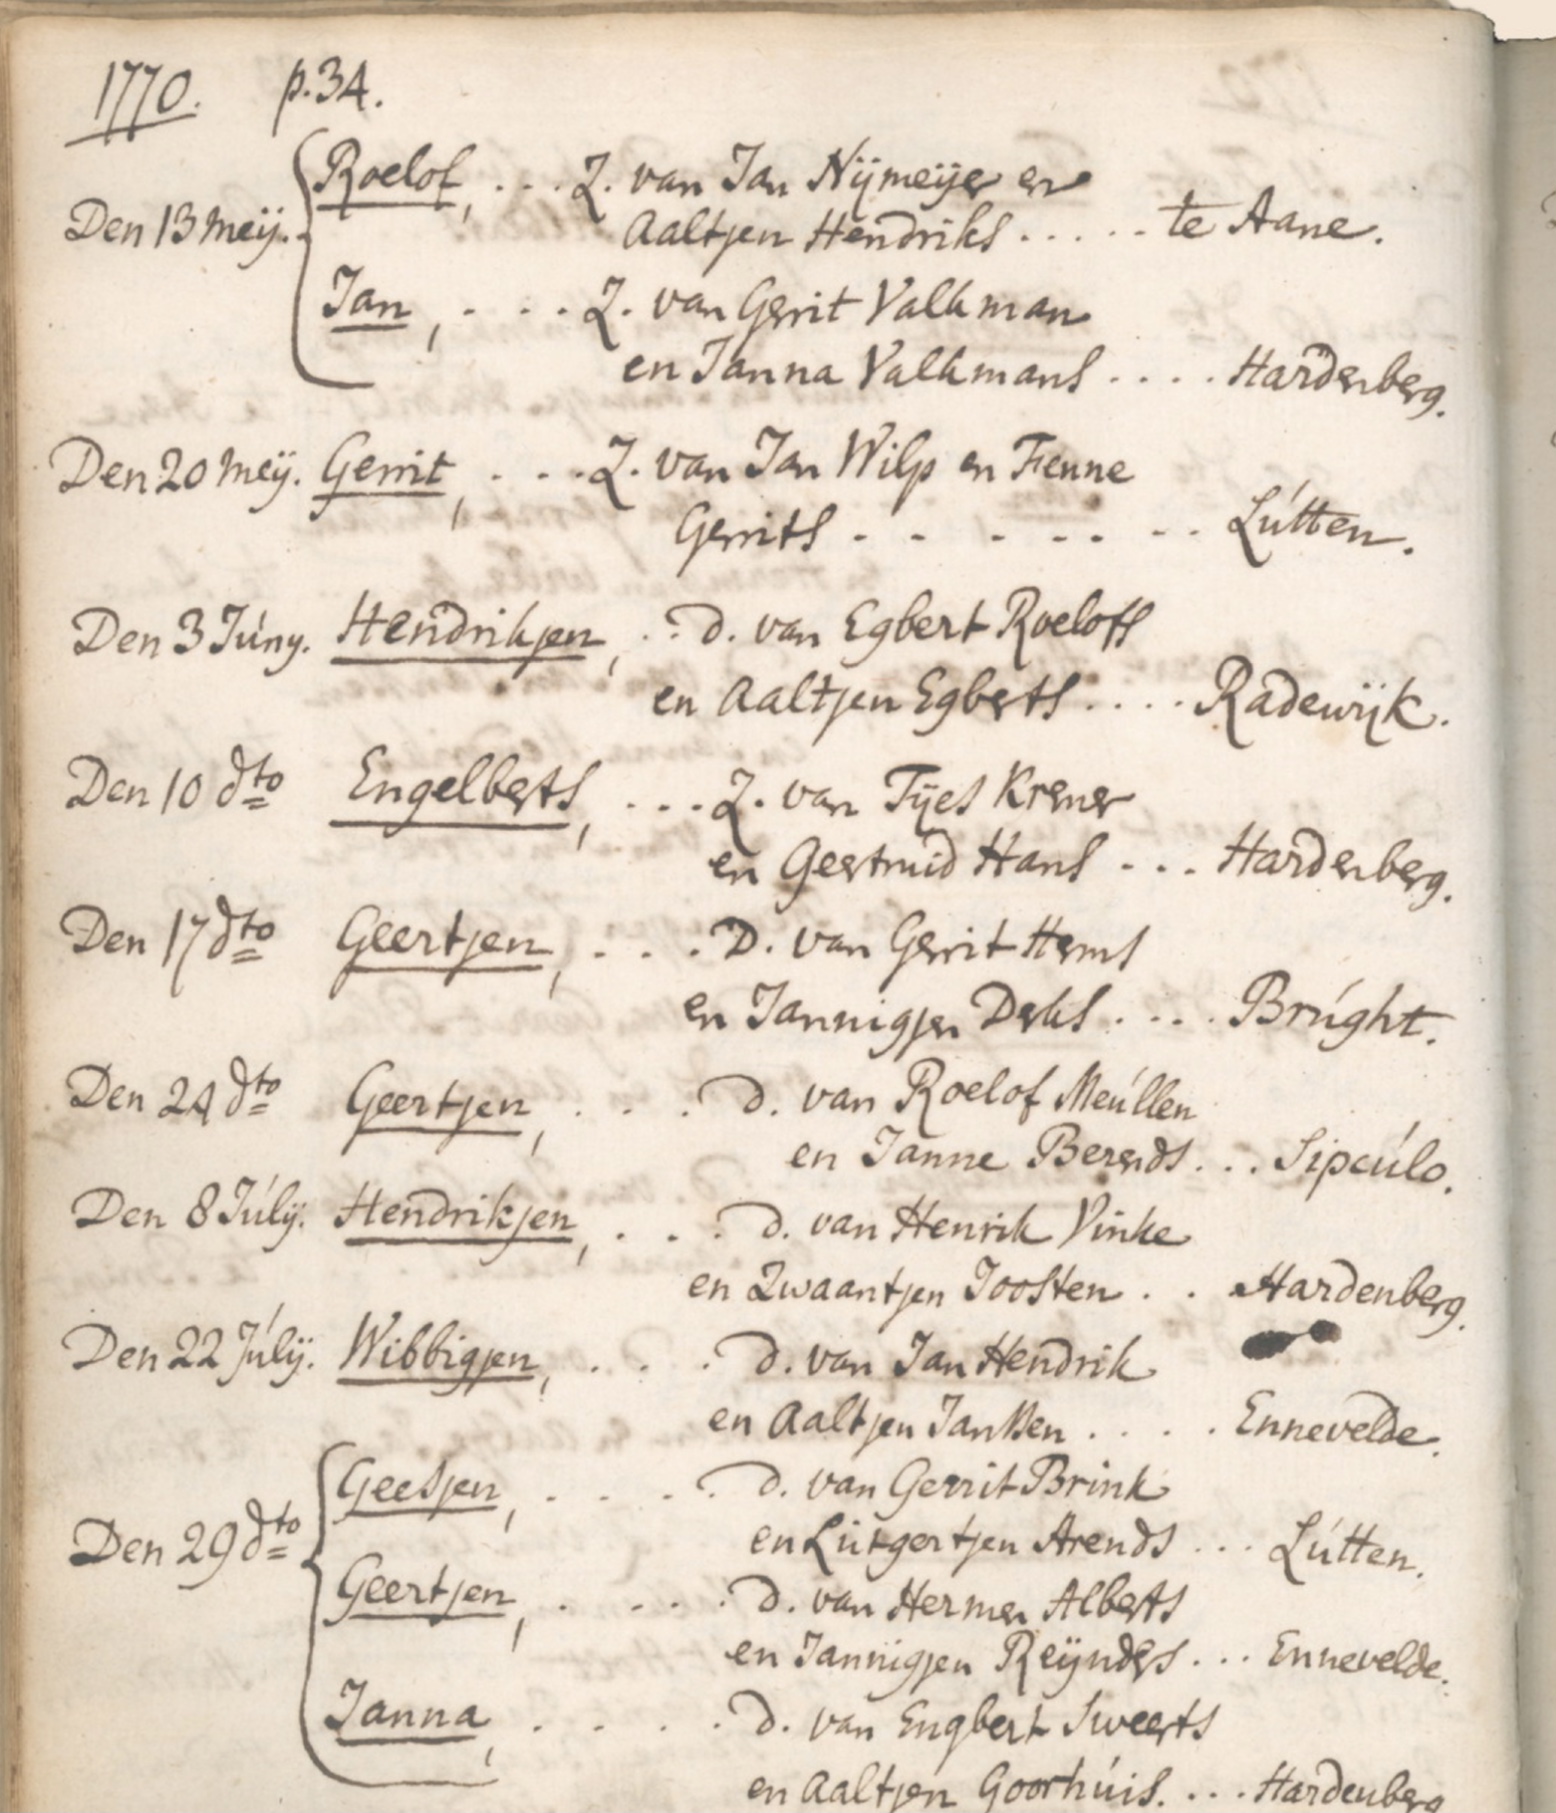 1770. p.34.
Den 13 Meij. Roelof, . . . Z. van Jan Nijmeijer en
Aaltjen Hendriks . . . . . te Aane.
Jan, . . . . Z. van Gerrit Valkman
en Janna Valkmans . . . . Hardenberg.
Den 20 Meij. Gerrit, . . . . Z. van Jan Wilps en Fenne
Gerrits . . . . . . . Lútten.
Den 3 Júny. Hendrikjen, . . d. van Egbert Roelofs
en Aaltjen Egberts . . . . Radewijk.
Den 10 dto Engelberts, . . . Z. van Tijes Kremer
en Geertruid Hans . . . Hardenberg.
Den 17 dto Geertjen, . . . D. van Gerrit Herms
en Jannigjen Derks . . . . Brúght.
Den 24 dto Geertjen, . . . d. van Roelof Meúllen
en Janne Berends . . . Sipcúlo.
Den 8 Júlij. Hendrikjen, . . . d. van Henrik Vinke
en Zwaantjen Joosten . . Hardenberg.
Den 22 Júlij. Wibbigjen, . . . d. van Jan Hendrik
en Aaltjen Janssen . . . . Ennevelde.
Den 29 dto Geesjen, . . . . d. van Gerrit Brink
en Lútgertjen Arends . . . Lútten.
Geertjen, . . . . d. van Hermen Alberts
en Jannigjen Reijnders . . . Ennevelde.
Janna, . . . . d. van Engbert Sweerts
en Aaltjen Goorhúis. . . . Hardenberg